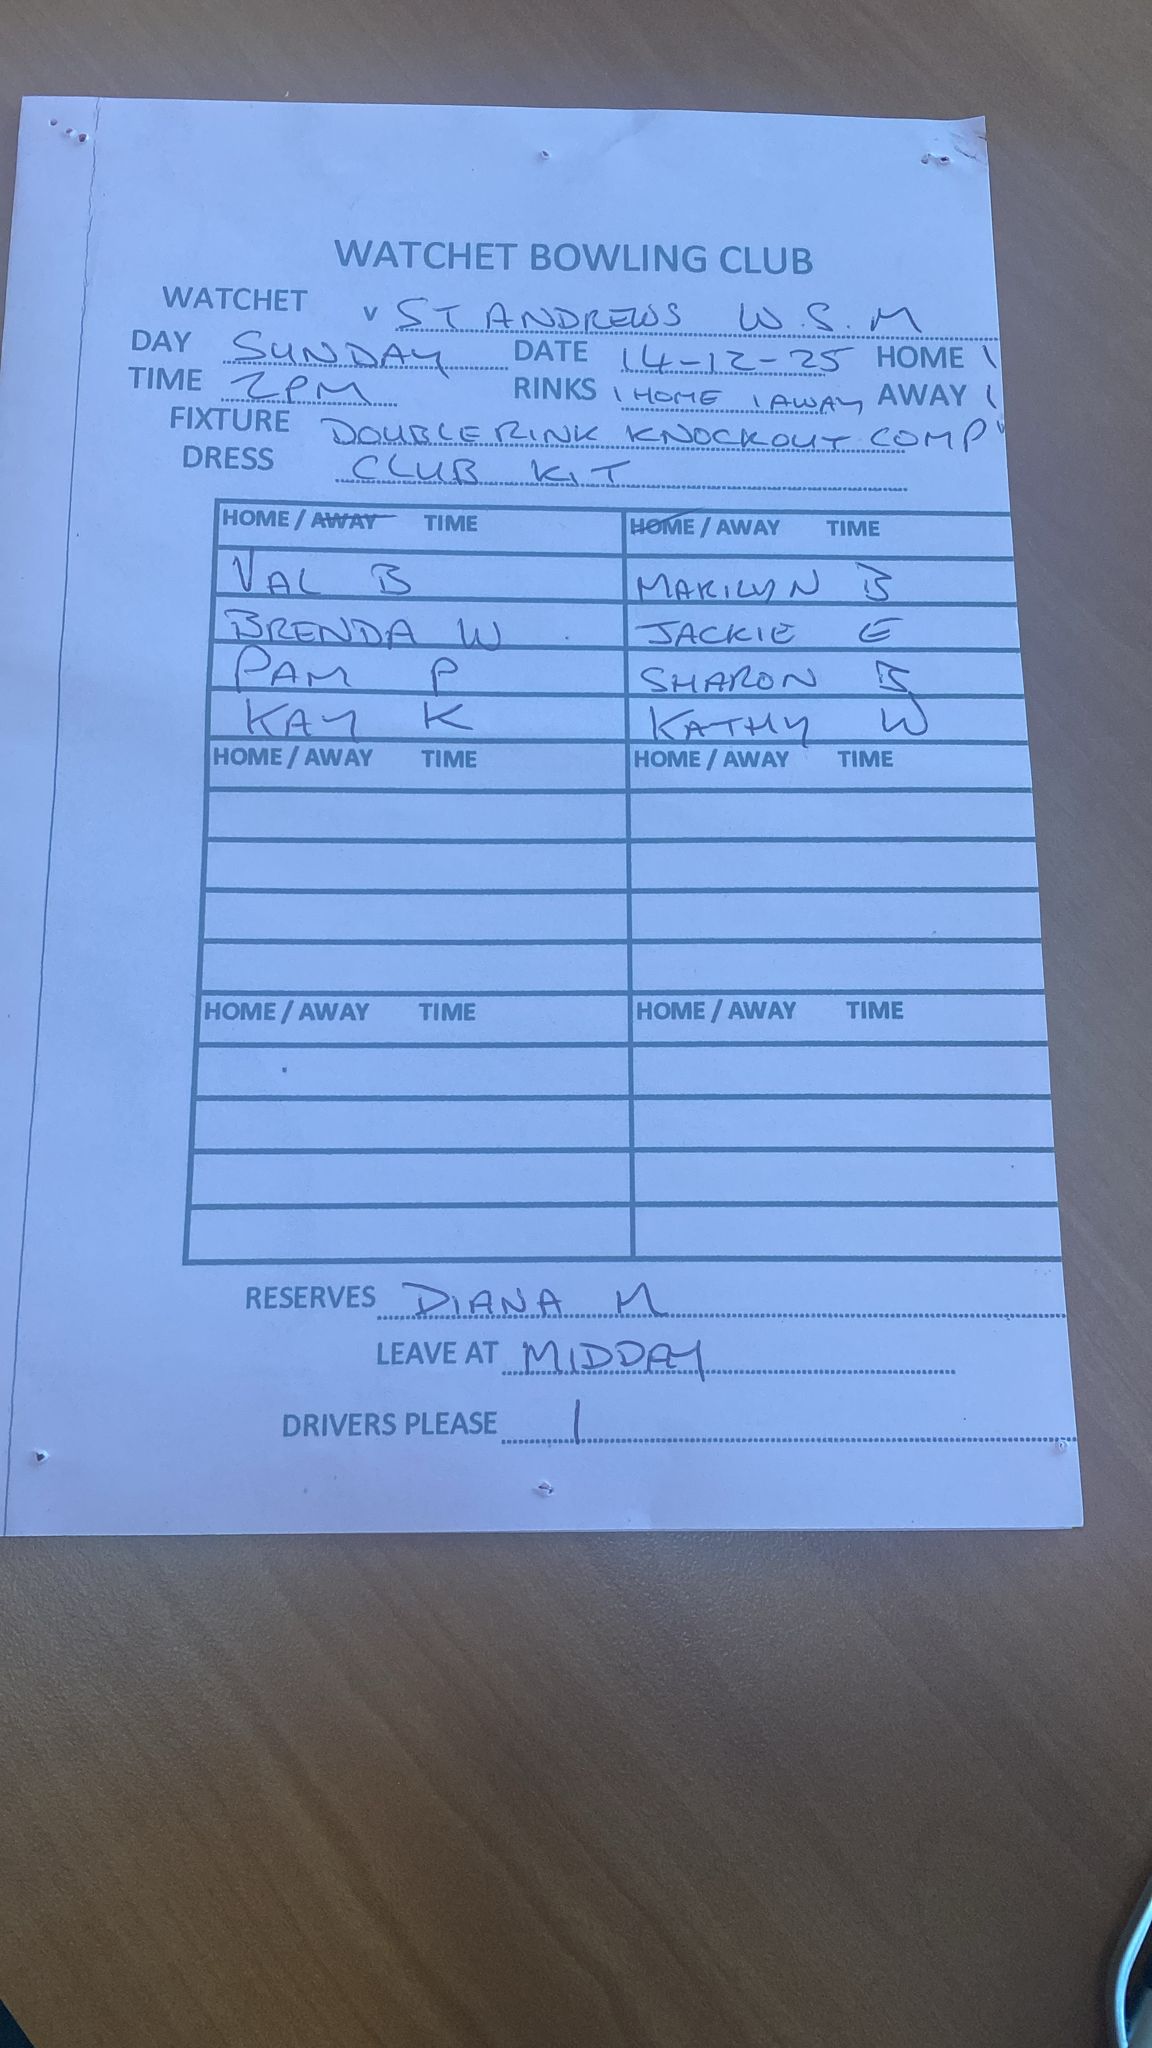 WATCHET BOWLING CLUB
WATCHET v ST ANDREWS W.S.M
DAY SUNDAY DATE 14-12-25 HOME \
TIME 2PM RINKS 1 HOME 1 AWAY AWAY (
FIXTURE DOUBLE RINK KNOCKOUT COMP
DRESS CLUB KIT
HOME / AWAY TIME HOME / AWAY TIME
VAL B MARILYN B
BRENDA W JACKIE E
PAM P SHARON B
KAY K KATHY W
HOME / AWAY TIME HOME / AWAY TIME
HOME / AWAY TIME HOME / AWAY TIME
RESERVES DIANA M
LEAVE AT MIDDAY
DRIVERS PLEASE 1